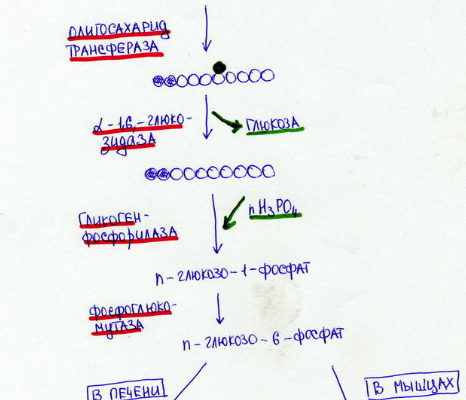 ОЛИГОСАХАРИД
ТРАНСФЕРАЗА
α-1,6,-ГЛЮКО-
ЗИДАЗА
ГЛЮКОЗА
ГЛИКОГЕН-
ФОСФОРИЛАЗА
n H₃PO₄
n-ГЛЮКОЗО-1-ФОСФАТ
ФОСФОГЛЮКО-
МУТАЗА
n-ГЛЮКОЗО-6-ФОСФАТ
В ПЕЧЕНИ
В МЫШЦАХ